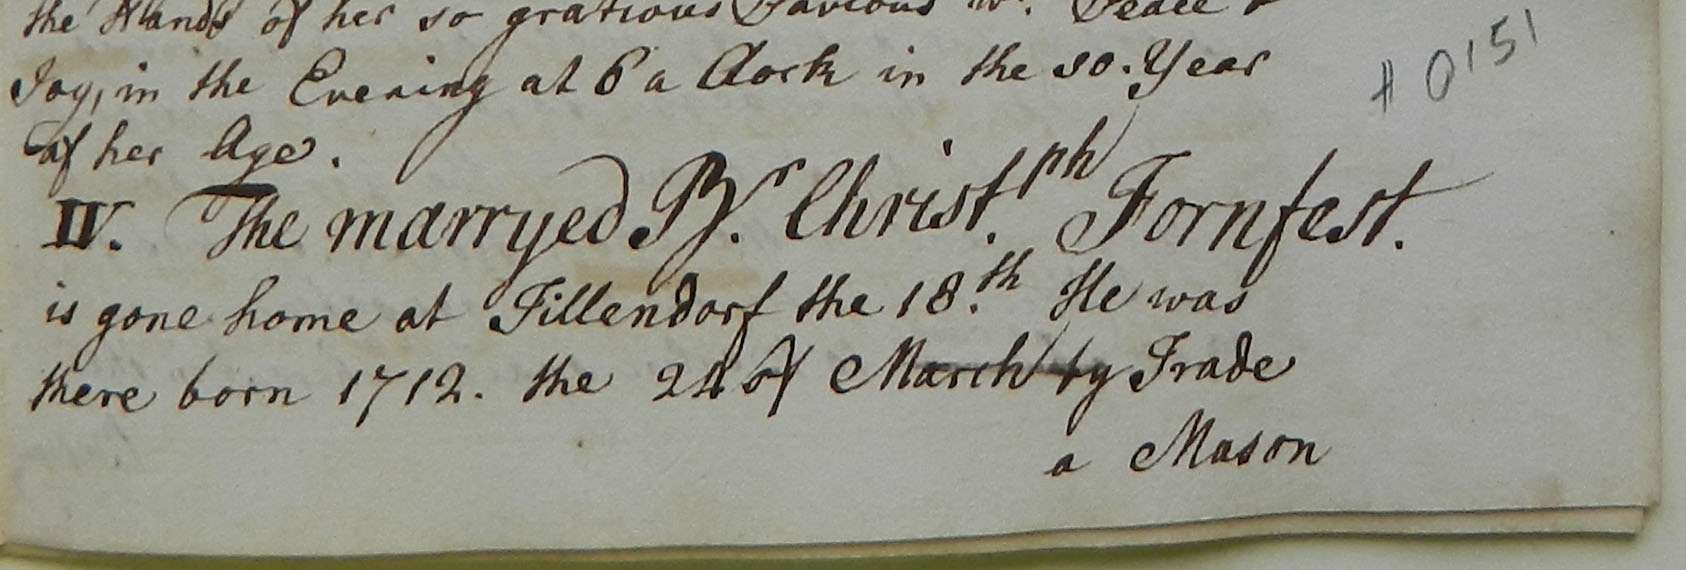 the Hands of her so gratious Saviour wth. Peace &
Joy, in the Evening at 6 a Clock in the 50. Year
of her Age.
# 0151
IV. The marryed Br. Christ.ph Fornfest.
is gone home at Tillendorf the 18.th He was
there born 1712. the 24 of March by Trade
a Mason